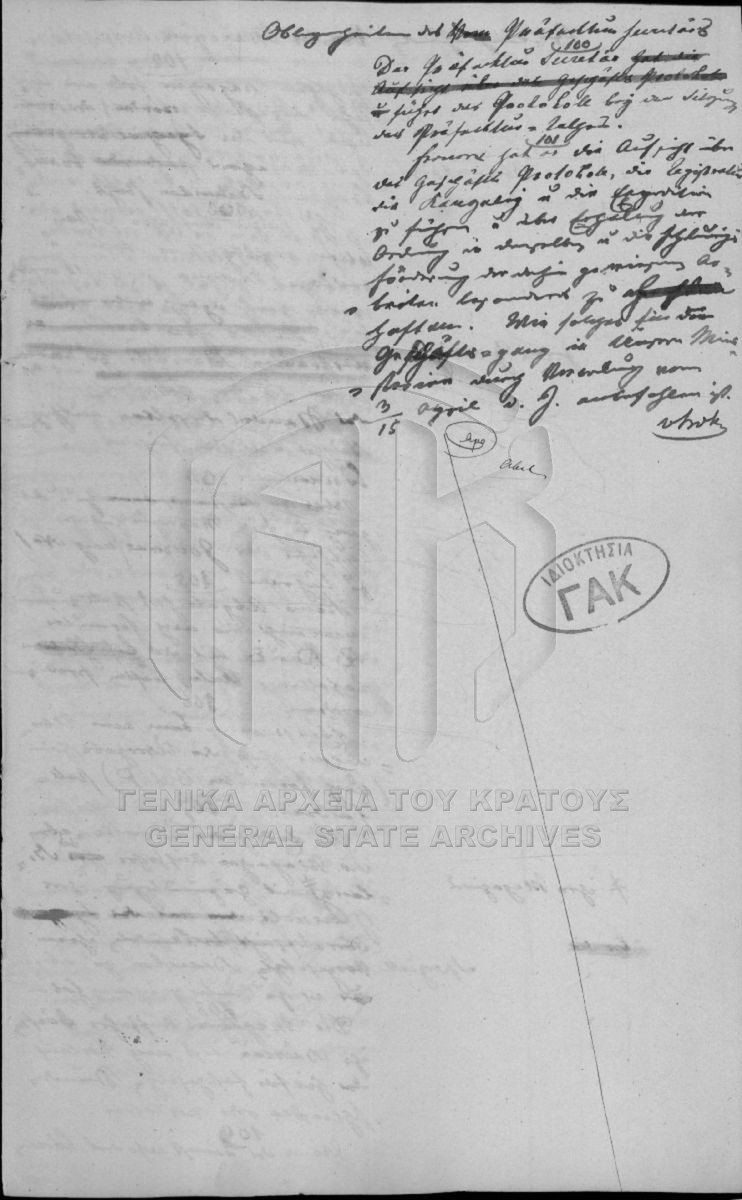 Obliegenheiten des Präfectur Secretärs
100
Der Präfectur Secretär hat die
Aufsicht über das Geschäfts Protokoll
u führt das Protokoll bey den Sitzungen
des Präfectur-Rathes.
101
Ferner hat er die Aufsicht über
das Geschäfts Protokoll, die Registratur
die Kanzeley u die Expedition
zu führen u über Erhaltung der
Ordnung in denselben u die
förderung der dahin gewiesenen Ar-
beiten besonders zu
haften. Wie solches für den
Geschäfts-gang in Unsern Mini-
sterien durch Verordnung vom
3/15 April d. J. anbefohlen ist.
Abel
ΙΔΙΟΚΤΗΣΙΑ
ΓΑΚ
ΓΕΝΙΚΑ ΑΡΧΕΙΑ ΤΟΥ ΚΡΑΤΟΥΣ
GENERAL STATE ARCHIVES